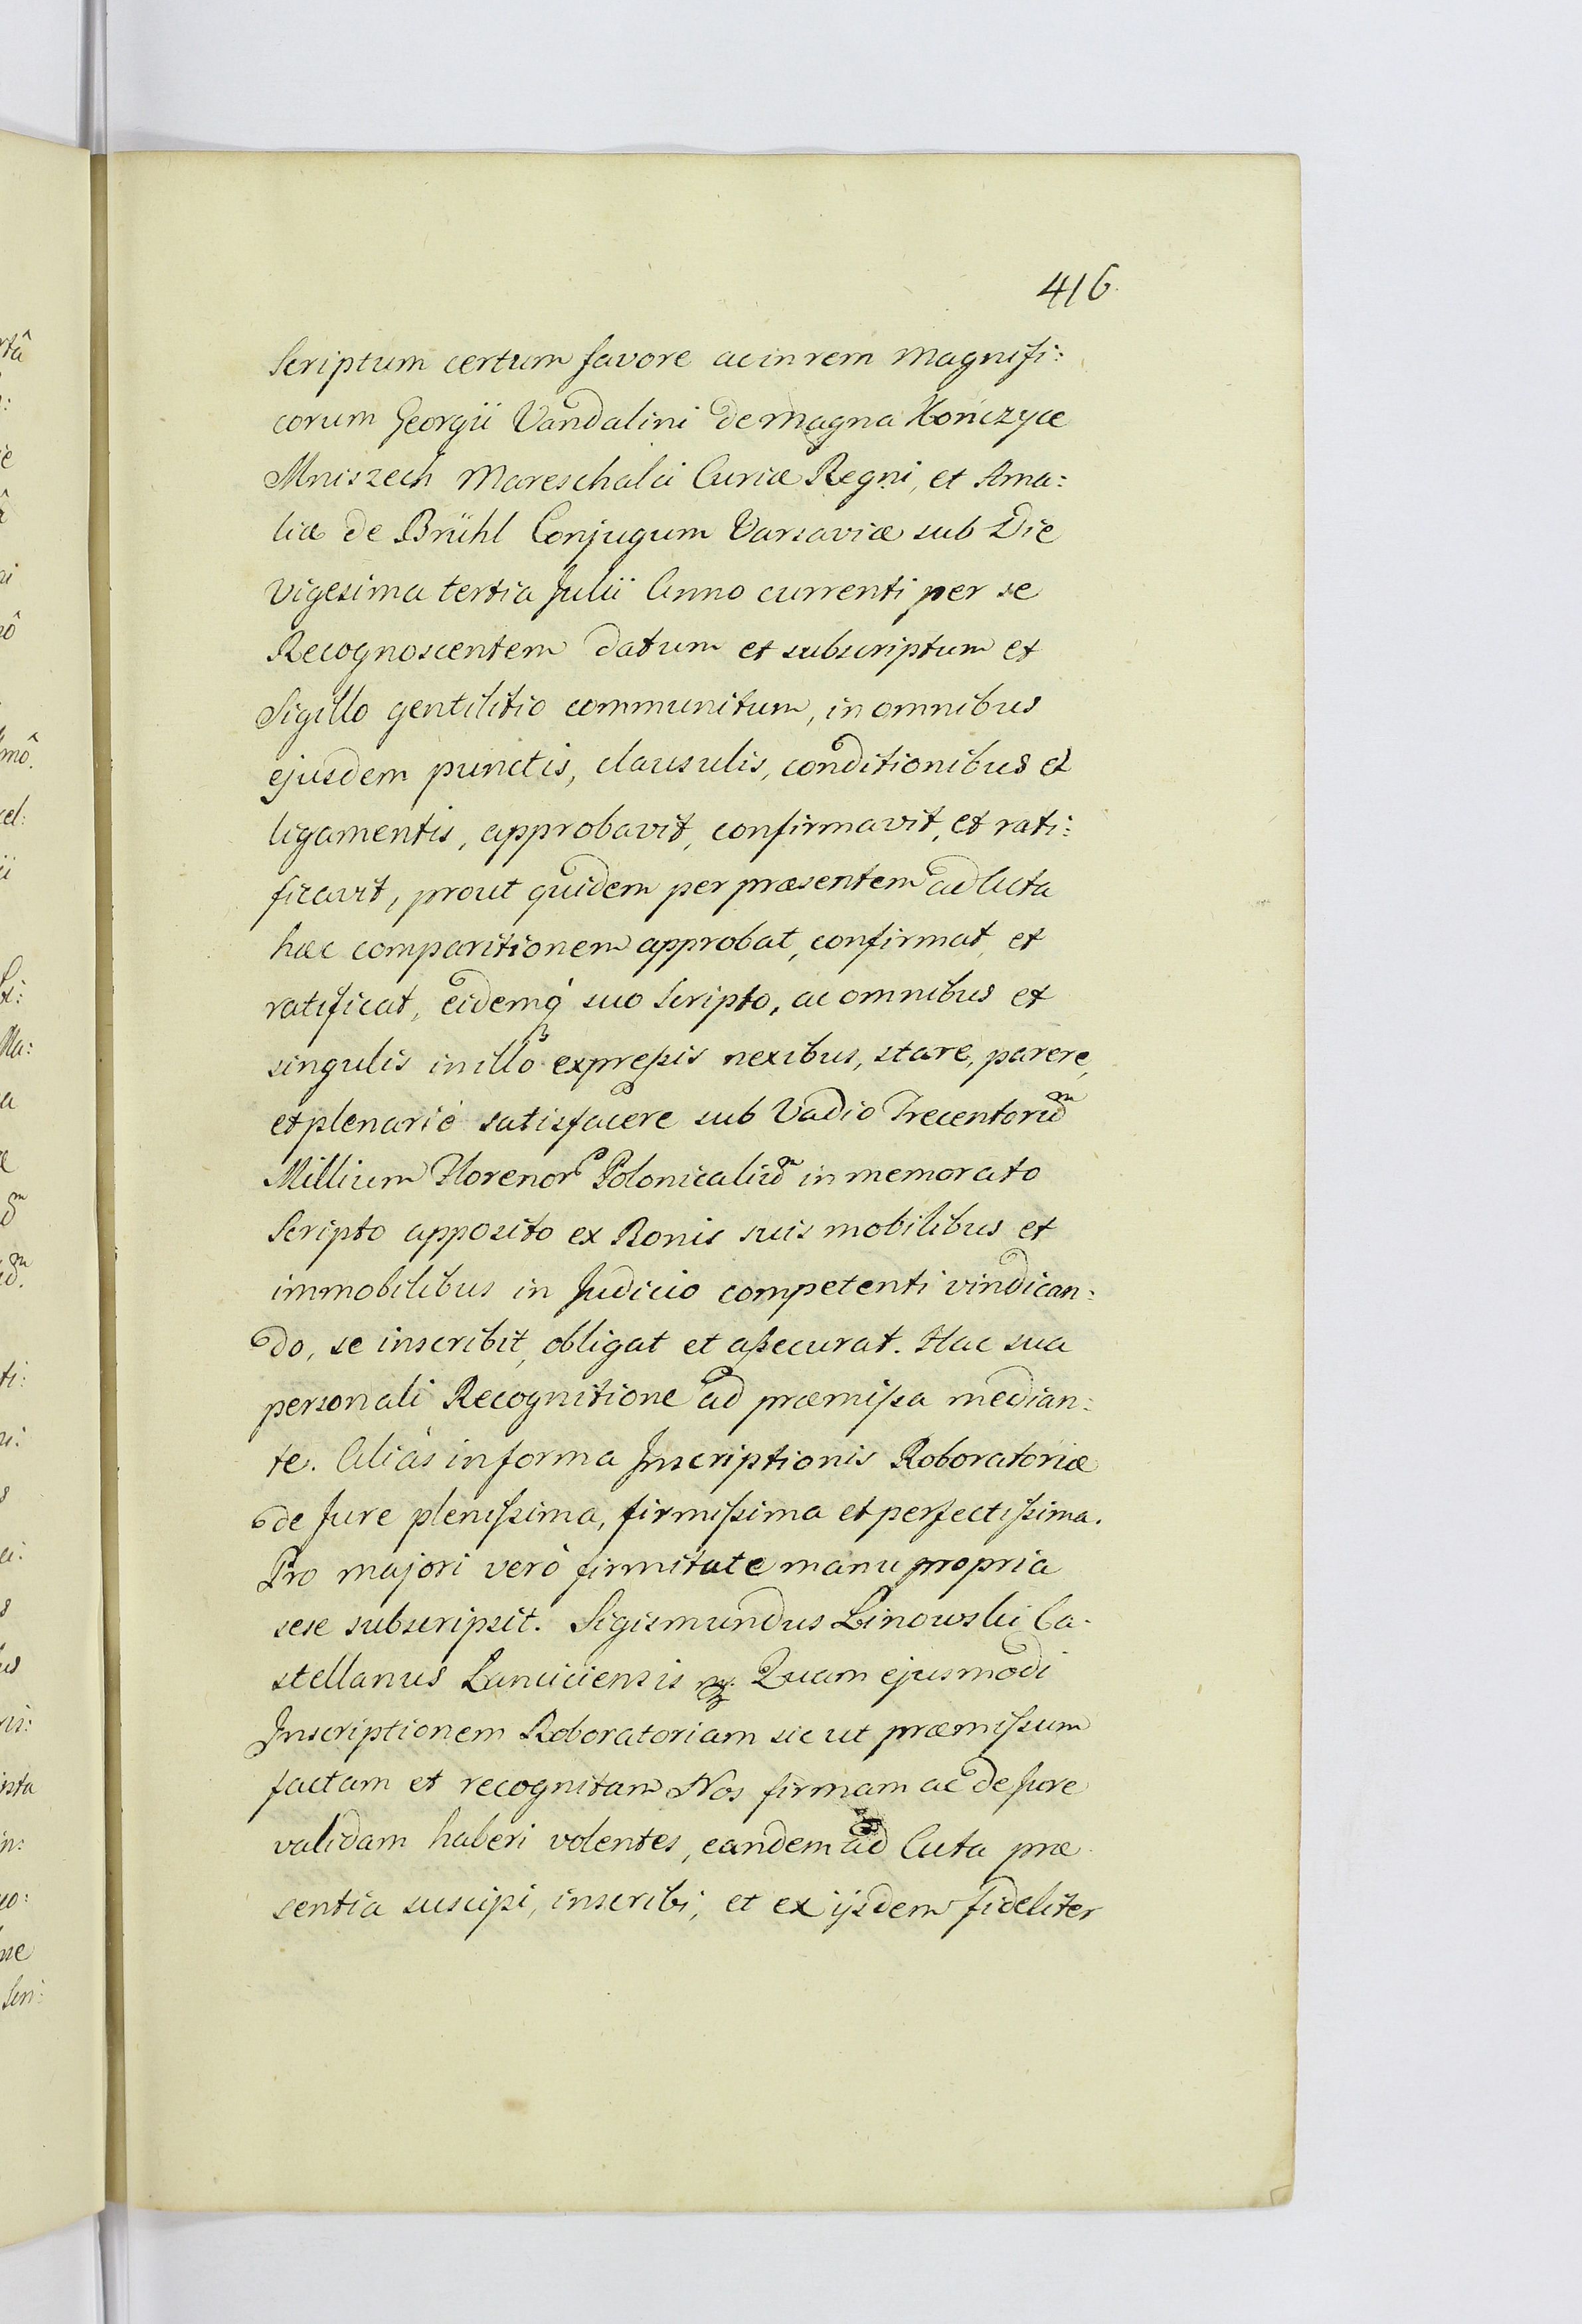 416.
Scriptum certum favore ac in rem Magnifi:
corum Georgii Vandalini de Magna Kończyce
Mniszech Mareschalci Curiæ Regni, et Ama:
liæ de Brühl Conjugum Varsaviæ sub Die
vigesima tertia Julii Anno currenti per se
Recognoscentem datum et subscriptum et
Sigillo gentilitio communitum, in omnibus
ejusdem punctis, clausulis, conditionibus et
ligamentis, approbavit, confirmavit, et rati:
ficavit, prout quidem per præsentem ad Acta
hæc comparitionem approbat, confirmat, et
ratificat, eidemq́ suo Scripto, ac omnibus et
singulis in illo expreſsis nexibus, stare, parere,
et plenariè satisfacere sub Vadio Trecentorũm
Millium Florenor Polonicaliũm in memorato
Scripto apposito ex Bonis suis mobilibus et
immobilibus in Judicio competenti vindican:
do, se inscribit, obligat et aſsecurat. Hac sua
personali Recognitione ad præmiſsa median:
te. Aliàs in forma Inscriptionis Roboratoriæ
de Jure pleniſsima, firmiſsima et perfectiſsima.
Pro majori verò firmitate manu propria
sese subscripsit. Sigismundus Linowski Ca-
stellanus Lanciciensis mp. Quam ejusmodi
Inscriptionem Roboratoriam sic ut præmiſsum
factam et recognitam Nos firmam ac de Jure
validam haberi volentes, eandem ad Acta præ
sentia suscipi, inscribi, et ex ijsdem fideliter